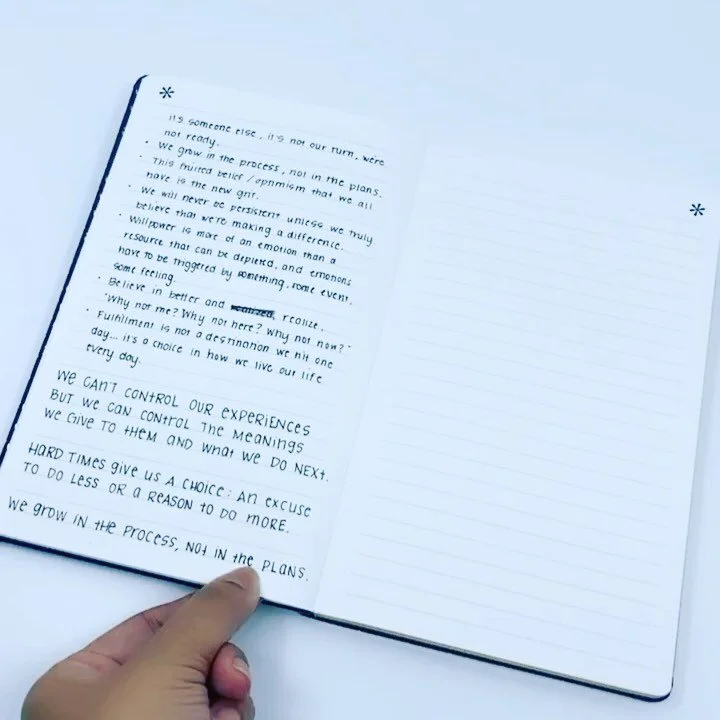 *
it's someone else, it's not our turn, were
not ready.
• We grow in the process, not in the plans.
• This fruited belief / optimism that we all
have is the new grit.
• We will never be persistent unless we truly
believe that we're making a difference.
• Willpower is more of an emotion than a
resource that can be depleted, and emotions
have to be triggered by something, some event,
some feeling.
• Believe in better and realize,
"Why not me? Why not here? Why not now?"
• Fulfillment is not a destination we hit one
day... it's a choice in how we live our life
every day.
WE CAN'T CONTROL OUR EXPERIENCES
BUT WE CAN CONTROL THE MEANINGS
WE GIVE TO THEM AND WHAT WE DO NEXT.
HARD TIMES GIVE US A CHOICE: AN EXCUSE
TO DO LESS OR A REASON TO DO MORE.
WE GROW IN THE PROCESS, NOT IN THE PLANS.
*